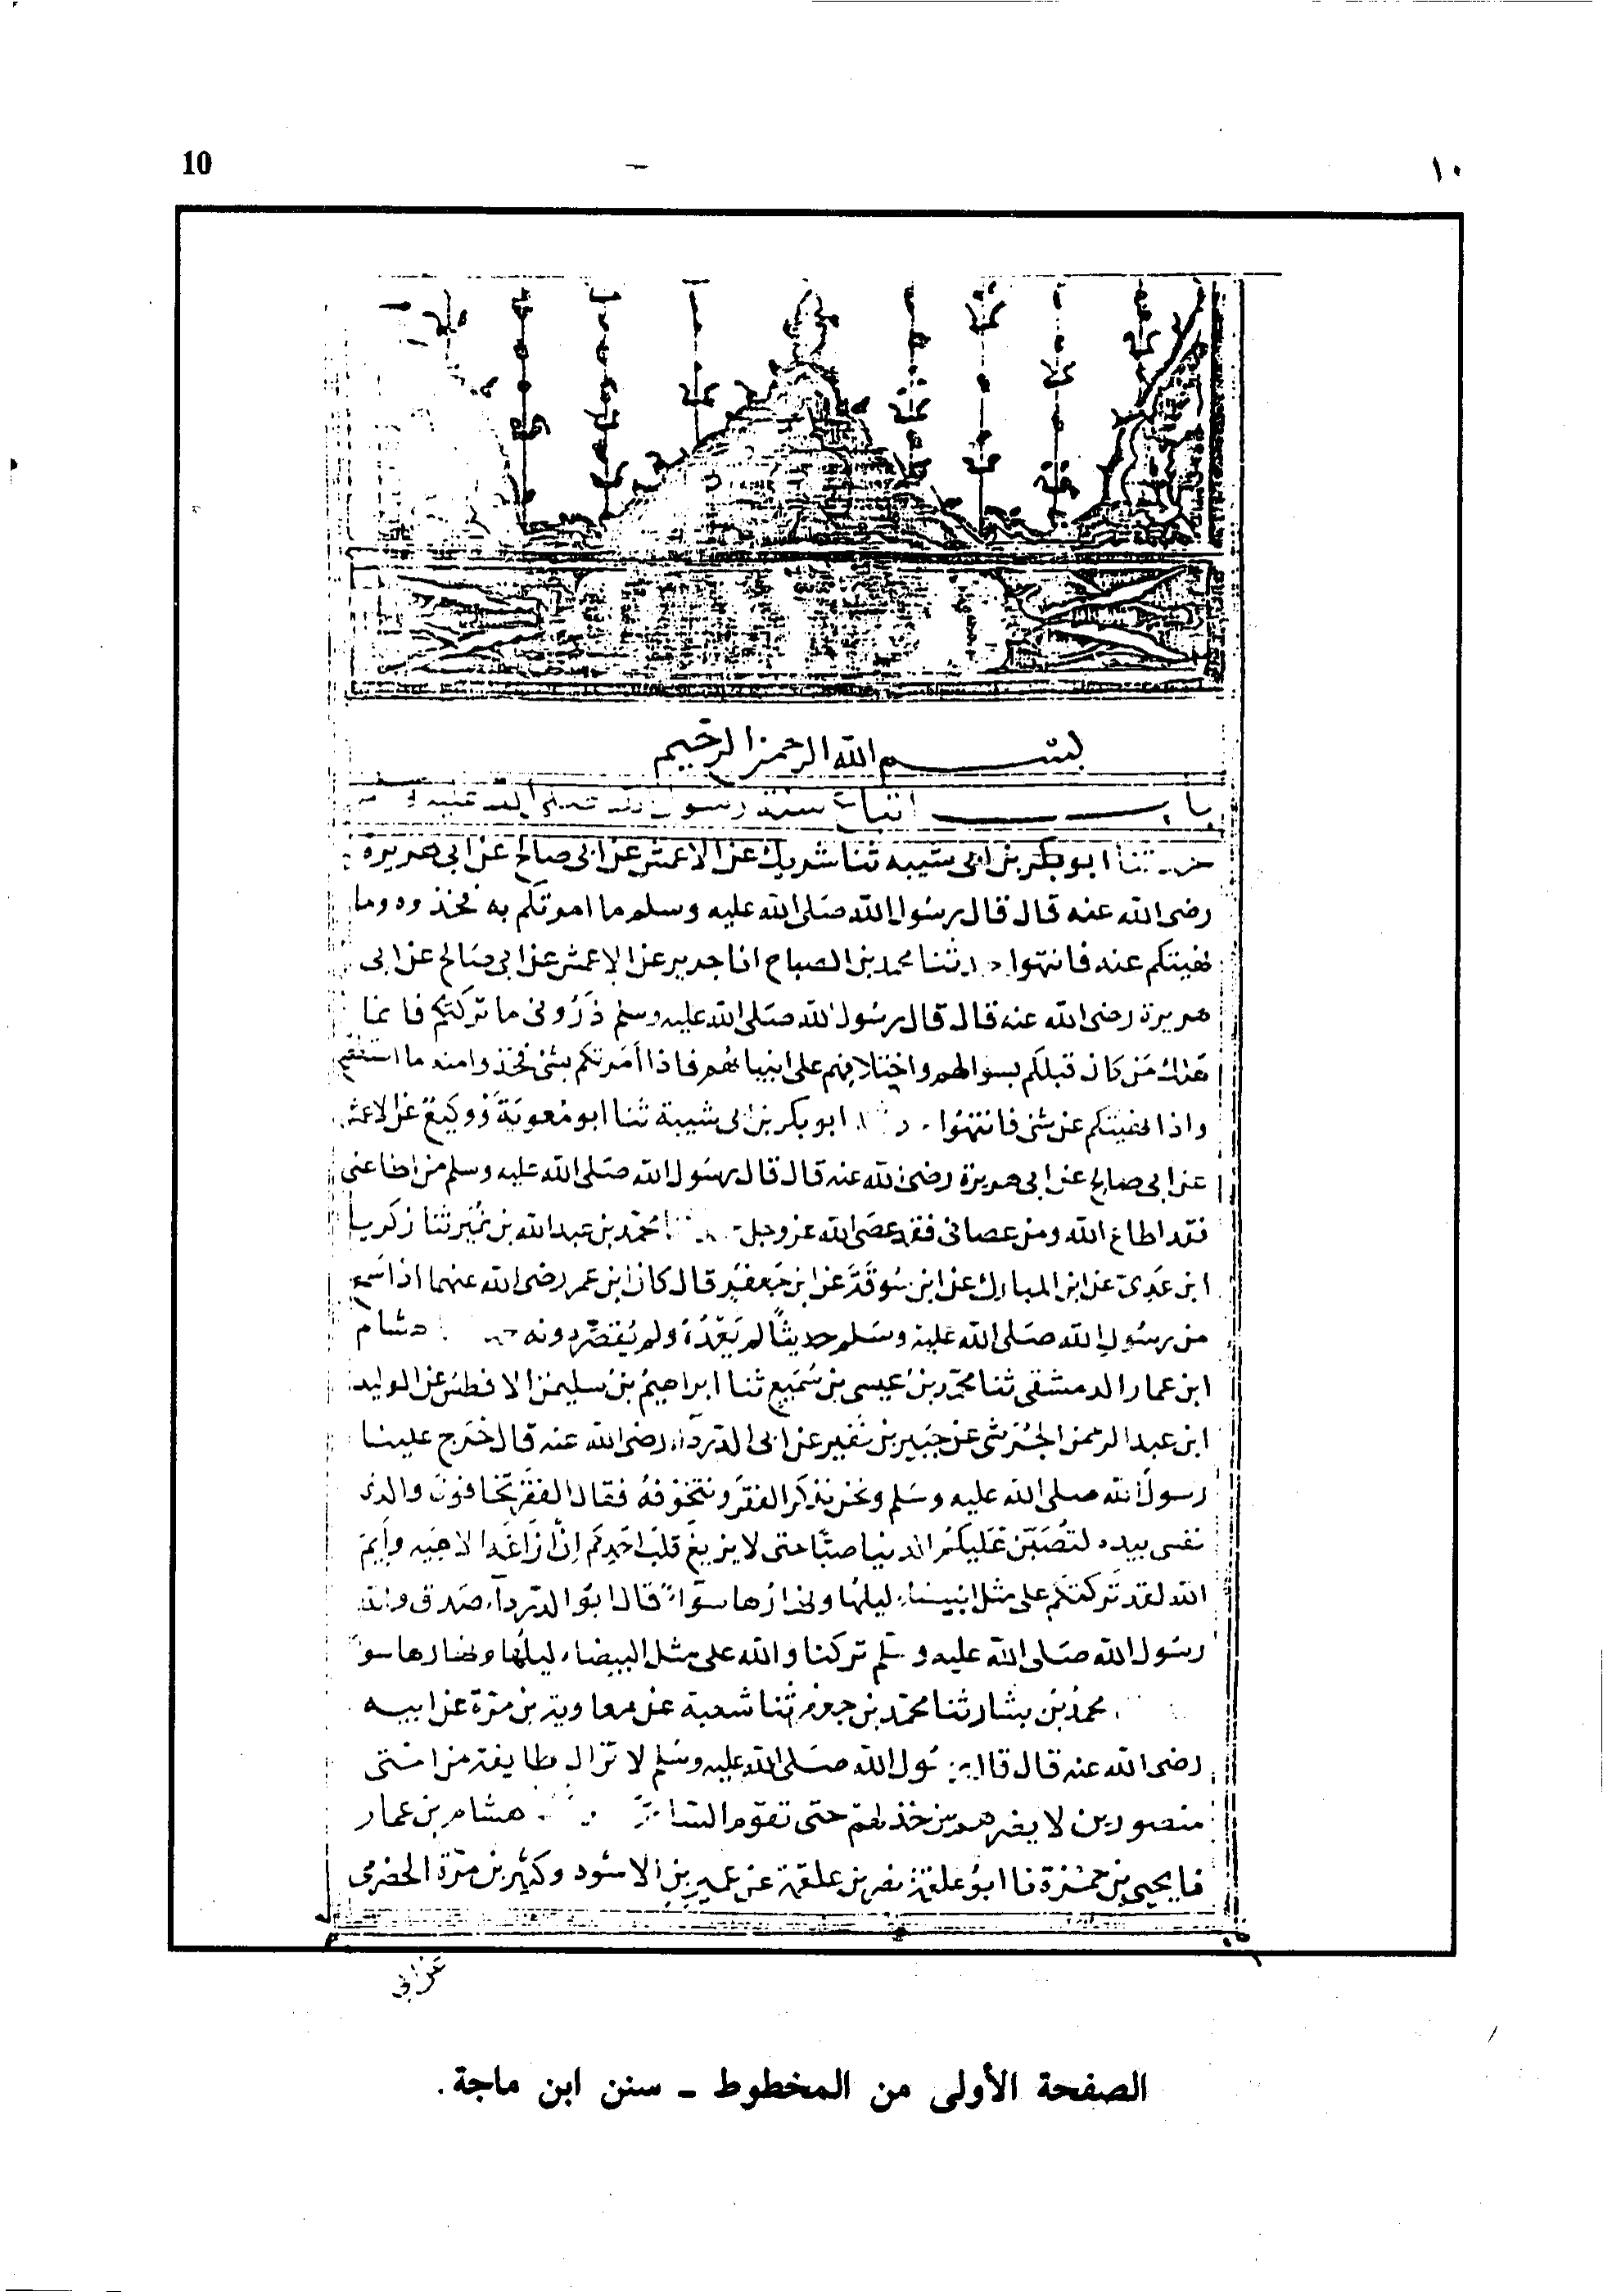 10
١٠
بسم الله الرحمن الرحيم
باب اتباع سنة رسول الله صلى الله عليه و
حدثنا ابو بكر بن ابى شيبه ثنا شريك عن الاعمش عن ابى صالح عن ابى هريرة
رضى الله عنه قال قال رسول الله صلى الله عليه وسلم ما امرتكم به فخذوه وما
نهيتكم عنه فانتهوا حدثنا محمد بن الصباح انا جرير عن الاعمش عن ابى صالح عن ابى
هريرة رضى الله عنه قال قال رسول الله صلى الله عليه وسلم ذرونى ما تركتكم فانما
هلك من كان قبلكم بسوالهم واختلافهم على انبيائهم فاذا امرتكم بشئ فخذوا منه ما استطعتم
واذا نهيتكم عن شئ فانتهوا ابو بكر بن ابى شيبة ثنا ابو معوية ووكيع عن الاعمش
عن ابى صالح عن ابى هريرة رضى الله عنه قال قال رسول الله صلى الله عليه وسلم من اطاعنى
فقد اطاع الله ومن عصانى فقد عصى الله عز وجل محمد بن عبد الله بن نمير ثنا زكريا
ابن عدى عن ابن المبارك عن ابن سوقة عن ابى جعفر قال كان ابن عمر رضى الله عنهما اذا سمع
من رسول الله صلى الله عليه وسلم حديثا لم يعده ولم يقصر دونه هشام
ابن عمار الدمشقى ثنا محمد بن عيسى بن سميع ثنا ابراهيم بن سليمن الافطس عن الوليد
ابن عبد الرحمن الجرشى عن جبير بن نفير عن ابى الدرداء رضى الله عنه قال خرج علينا
رسول الله صلى الله عليه وسلم ونحن نذكر الفقر ونتخوفه فقال الفقر تخافون والذى
نفسى بيده لتصبن عليكم الدنيا صبا حتى لا يزيغ قلب احدكم ان ازاغه الا هيه وايم
الله لقد تركتكم على مثل البيضاء ليلها ونهارها سواء قال ابو الدرداء صدق والله
رسول الله صلى الله عليه وسلم تركنا والله على مثل البيضاء ليلها ونهارها سواء
محمد بن بشار ثنا محمد بن جعفر ثنا شعبة عن معاوية بن قرة عن ابيه
رضى الله عنه قال قال رسول الله صلى الله عليه وسلم لا تزال طايفة من امتى
منصورين لا يضرهم من خذلهم حتى تقوم الساعة هشام بن عمار
ثنا يحيى بن حمزة نا ابو علقمة نصر بن علقمة عن عمير بن الاسود وكثير بن مرة الحضرمى
عن ابى
الصفحة الأولى من المخطوط ـ سنن ابن ماجة.